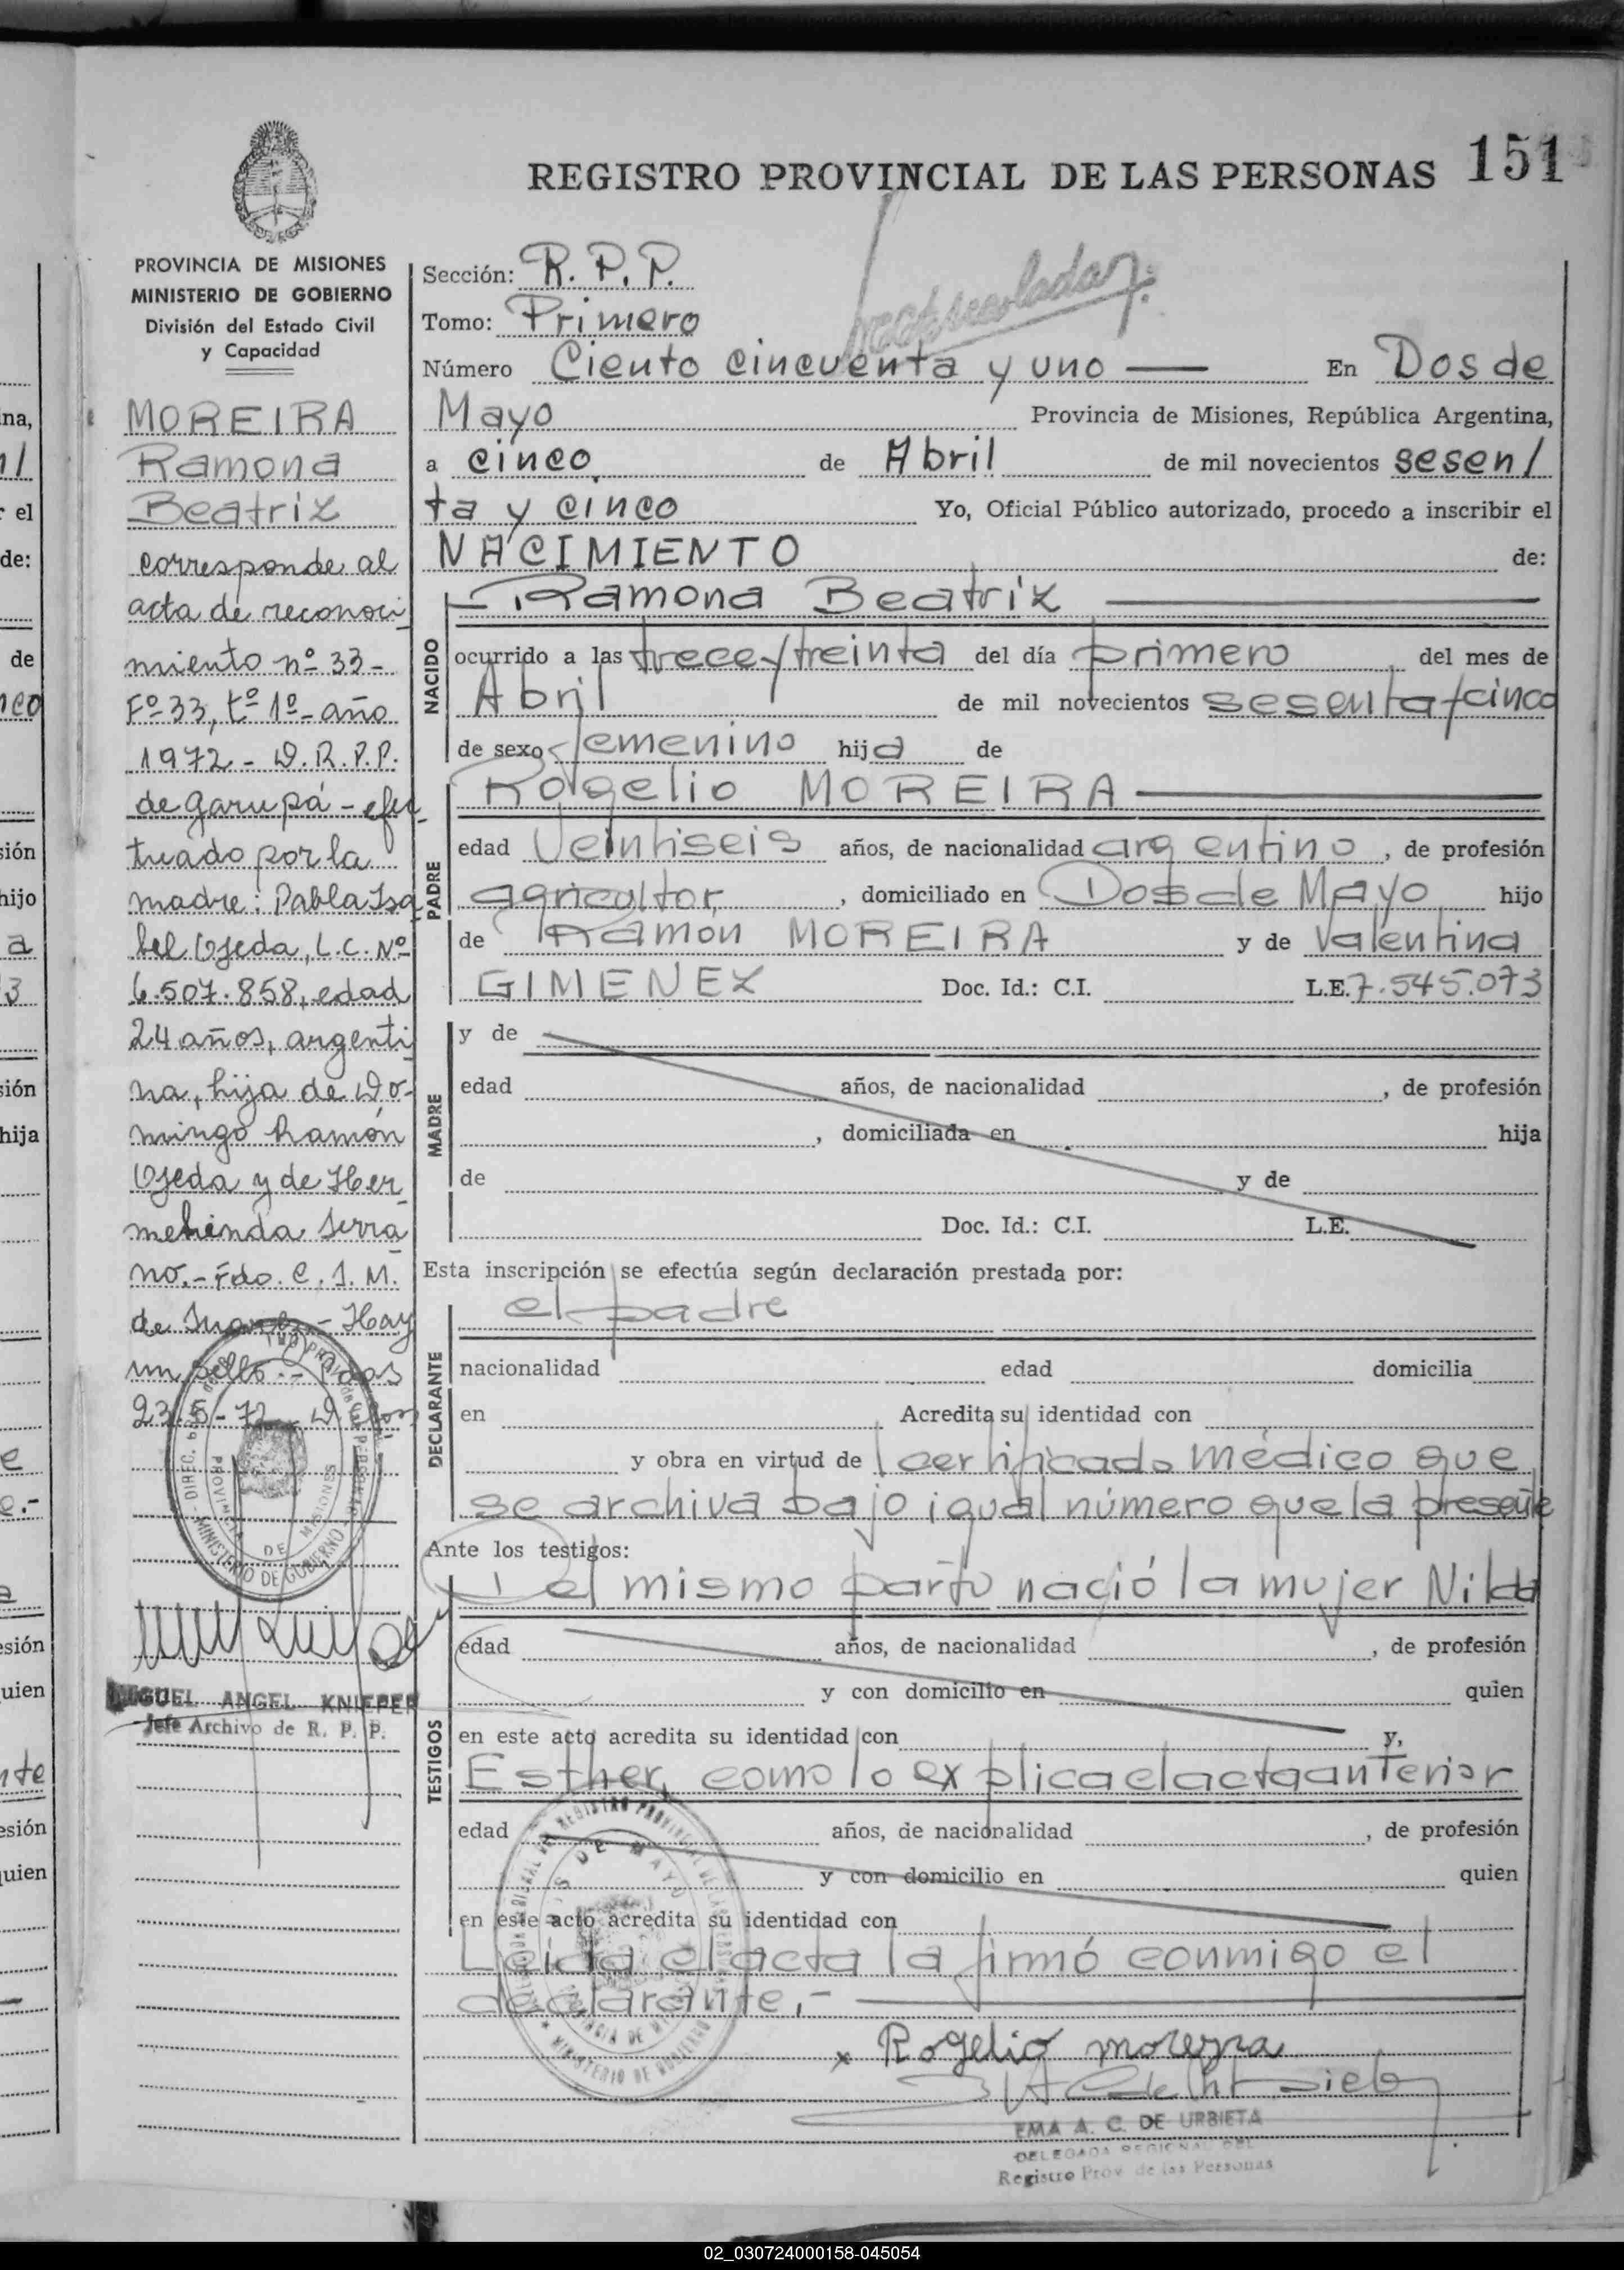 REGISTRO PROVINCIAL DE LAS PERSONAS 151
PROVINCIA DE MISIONES
MINISTERIO DE GOBIERNO
División del Estado Civil
y Capacidad
MOREIRA
Ramona
Beatriz
corresponde al
acta de reconoci
miento nº 33-
Fº 33, tº 1º- año
1972 - D.R.P.P.
de Garupá - efec
tuado por la
madre: Pabla Isa
bel Ojeda, L.C. Nº
6.507.858, edad
24 años, argenti
na, hija de Do-
mingo Ramón
Ojeda y de Her
mehinda Serra
no.- Fdo. C. I. M.
de - Hay
un sello.-
23-5-72
MIGUEL ANGEL KNIEPER
Jefe Archivo de R. P. P.
Sección: R. P. P.
Tomo: Primero
Número Ciento cincuenta y uno — En Dos de
Mayo Provincia de Misiones, República Argentina,
a cinco de Abril de mil novecientos sesen/
ta y cinco Yo, Oficial Público autorizado, procedo a inscribir el
NACIMIENTO de:
NACIDO
Ramona Beatriz
ocurrido a las trece y treinta del día primero del mes de
Abril de mil novecientos sesenta y cinco
de sexo femenino hija de
PADRE
Rogelio MOREIRA
edad Veintiseis años, de nacionalidad argentino, de profesión
agricultor, domiciliado en Dos de Mayo hijo
de Ramon MOREIRA y de Valentina
GIMENEZ Doc. Id.: C.I. L.E. 7.545.073
MADRE
y de
edad años, de nacionalidad , de profesión
, domiciliada en hija
de y de
Doc. Id.: C.I. L.E.
Esta inscripción se efectúa según declaración prestada por:
DECLARANTE
el padre
nacionalidad edad domicilia
en Acredita su identidad con
y obra en virtud de certificado médico que
se archiva bajo igual número que la presente
Ante los testigos:
TESTIGOS
Del mismo parto nació la mujer Nilda
edad años, de nacionalidad , de profesión
y con domicilio en quien
en este acto acredita su identidad con y,
Esther, como lo explica el acta anterior
edad años, de nacionalidad , de profesión
y con domicilio en quien
en este acto acredita su identidad con
Leída el acta la firmó conmigo el
declarante,-
x Rogelio moreyra
EMA A. C. DE URBIETA
DELEGADA REGIONAL DEL
Registro Prov. de las Personas
02_030724000158-045054